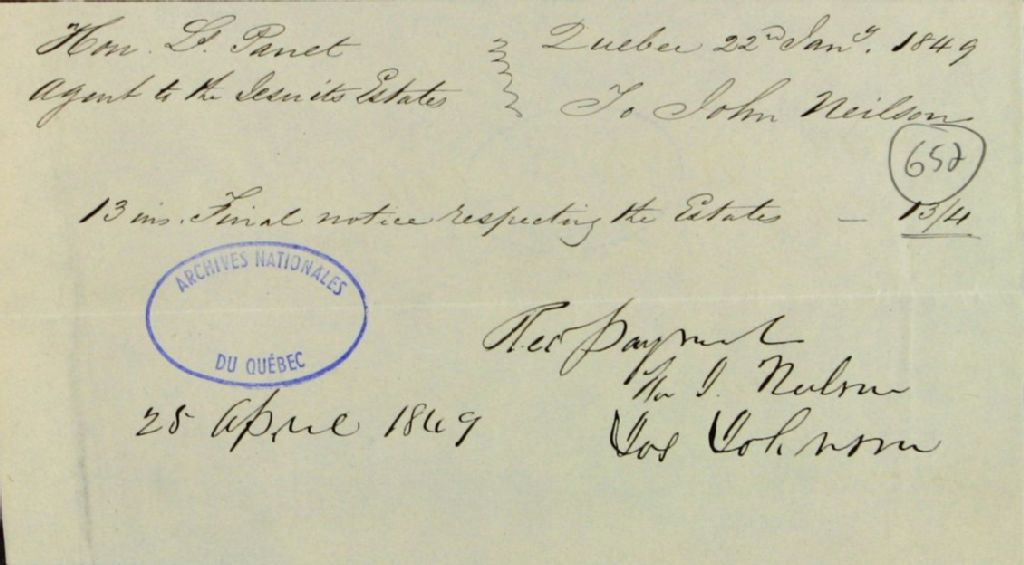 Hon. Ls. Panet
Agent to the Jesuits Estates
Quebec 22d Jany. 1849
To John Neilson
652
13 ins. Final notice respecting the Estates — 13/4
ARCHIVES NATIONALES
DU QUÉBEC
Rec payment
for J. Neilson
Jos Johnson
25 April 1849